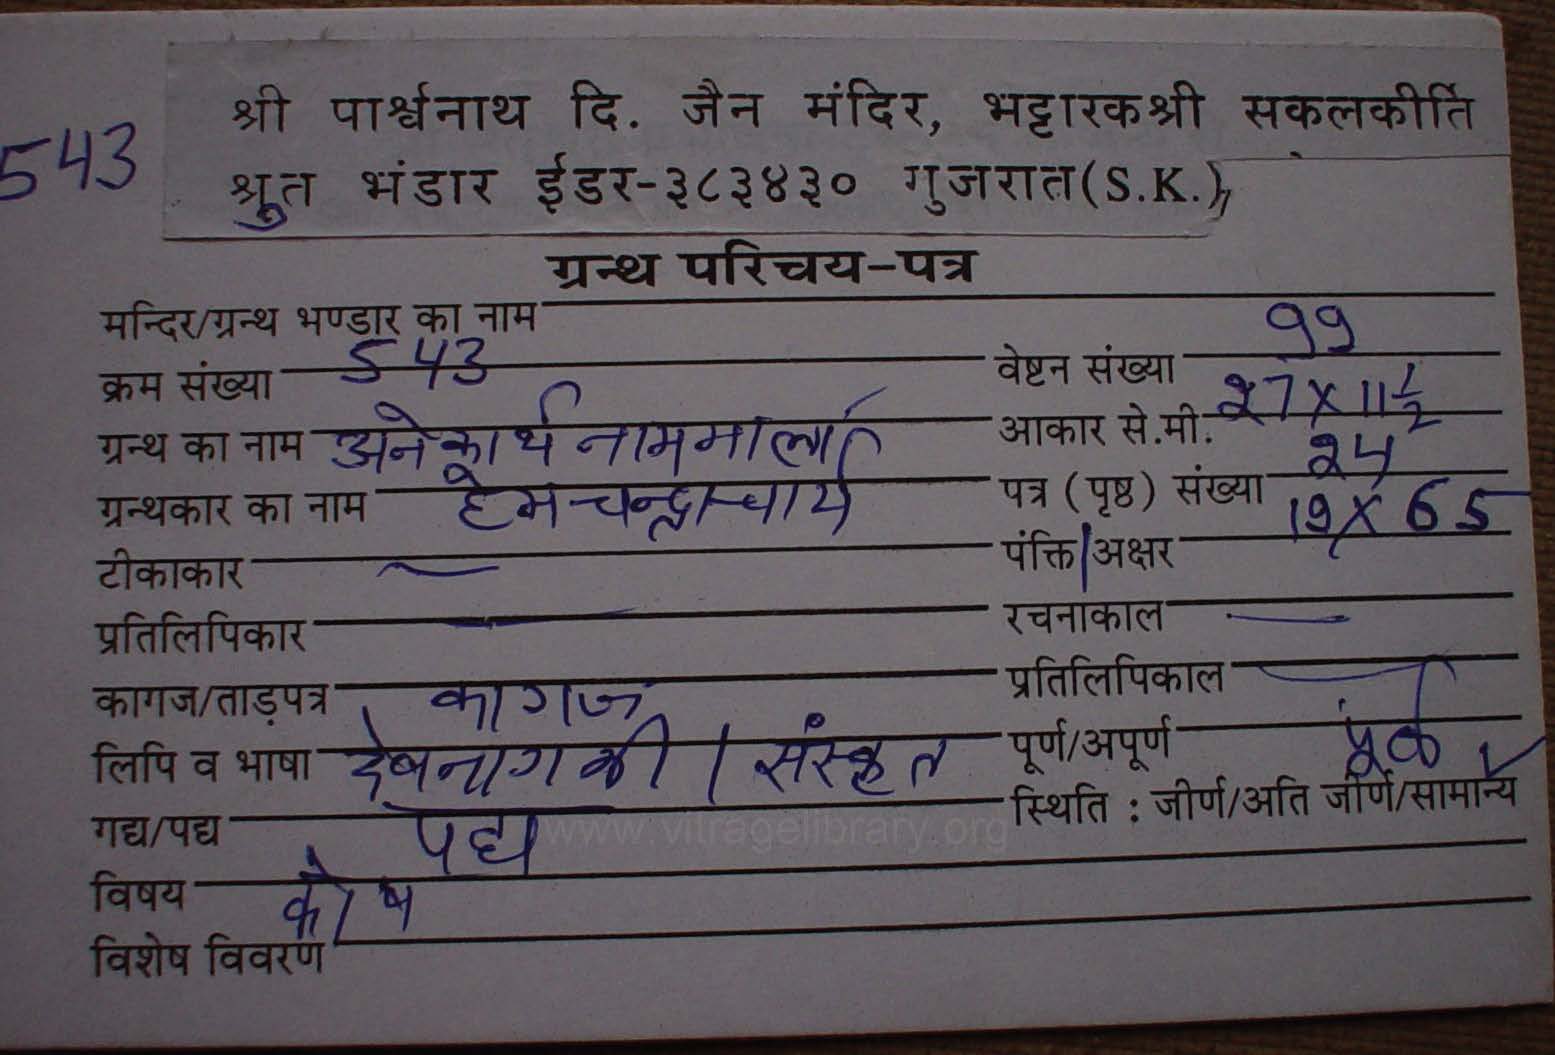 543
श्री पार्श्वनाथ दि. जैन मंदिर, भट्टारकश्री सकलकीर्ति
श्रुत भंडार ईडर-३८३४३० गुजरात(S.K.)
ग्रन्थ परिचय-पत्र
मन्दिर/ग्रन्थ भण्डार का नाम
क्रम संख्या 543
वेष्टन संख्या 99
ग्रन्थ का नाम अनेकार्थ नाममाला
आकार से.मी. 27 X 11 1/2
ग्रन्थकार का नाम हेमचन्द्राचार्य
पत्र (पृष्ठ) संख्या 24
टीकाकार —
पंक्ति/अक्षर 19 X 65
प्रतिलिपिकार —
रचनाकाल —
कागज/ताड़पत्र कागज
प्रतिलिपिकाल —
लिपि व भाषा देवनागरी / संस्कृत
पूर्ण/अपूर्ण पूर्ण
गद्य/पद्य पद्य
स्थिति : जीर्ण/अति जीर्ण/सामान्य ✓
विषय कोष
विशेष विवरण
www.vitragelibrary.org